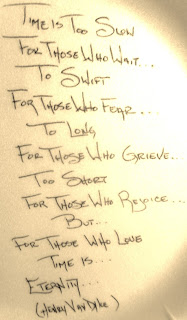 Time is Too Slow
For Those Who Wait...
To Swift
For Those Who Fear...
To Long
For Those Who Grieve...
Too Short
For Those Who Rejoice...
But...
For Those Who Love
Time is...
Eternity...
(Henry Van Dyke)